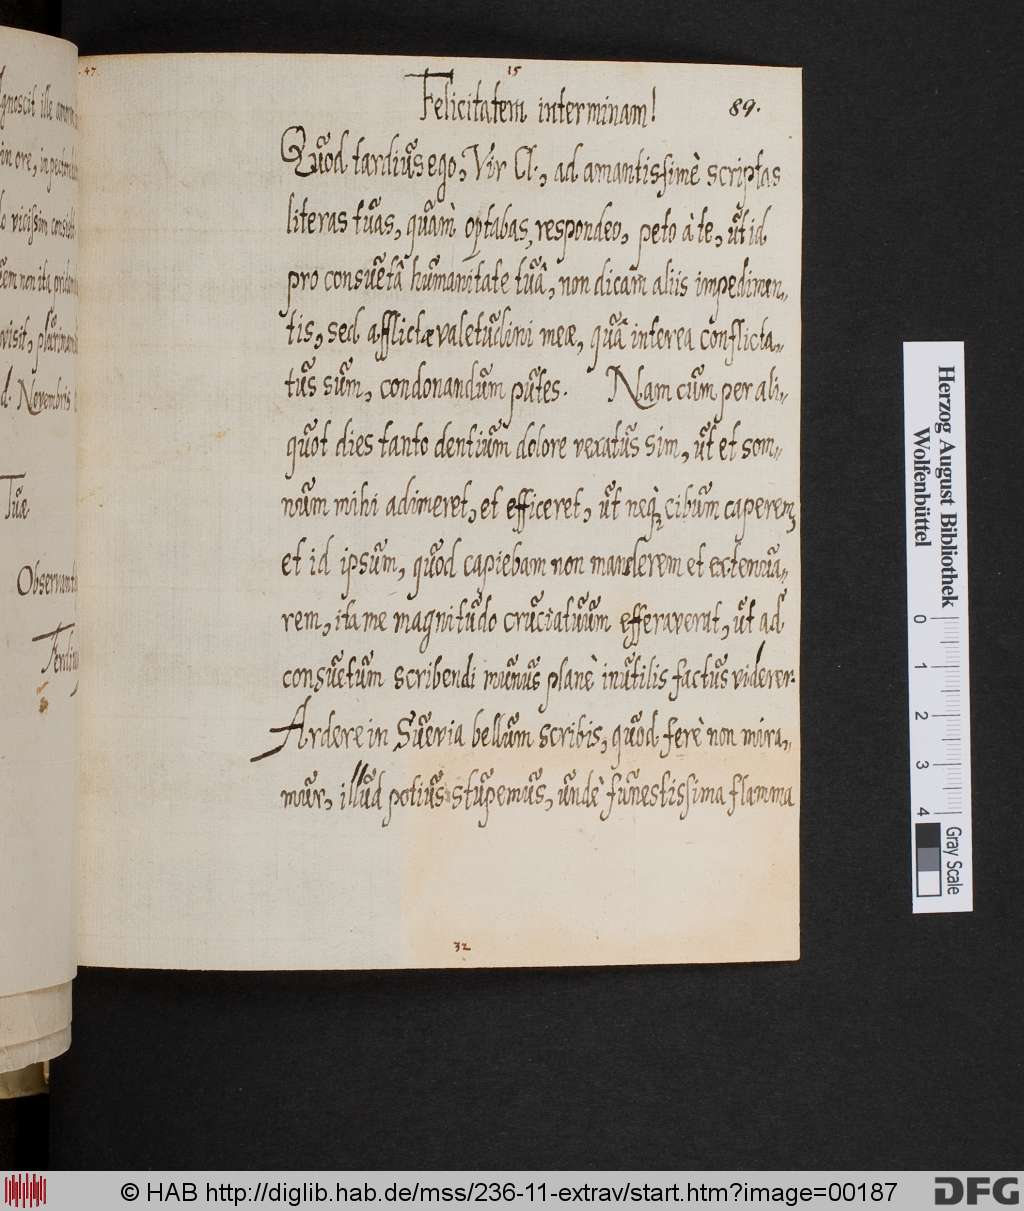 ignoscit ille
in ore, in
vicissim
non ita
d. Novembris
Tuæ
47.
15
89.
Felicitatem interminam!
Quod tardius ego, Vir Cl., ad amantissimè scriptas
literas tuas, quàm optabas, respondeo, peto à te, ut id
pro consuetâ humanitate tuâ, non dicam aliis impedimen„
tis, sed afflictæ valetudini meæ, quâ interea conflicta„
tus sum, condonandum putes. Nam cum per ali„
quot dies tanto dentium dolore vexatus sim, ut et som„
num mihi adimeret, et efficeret, ut neqꝫ cibum caperem,
et id ipsum, quod capiebam non manderem et extenua„
rem, ita me magnitudo cruciatuum efferaverat, ut ad
consuetum scribendi munus planè inutilis factus viderer.
Ardere in Suevia bellum scribis, quod ferè non mira„
mur, illud potius stupemus, undè funestissima flamma
32
Herzog August Bibliothek
Wolfenbüttel
0 1 2 3 4
Gray Scale
© HAB http://diglib.hab.de/mss/236-11-extrav/start.htm?image=00187
DFG